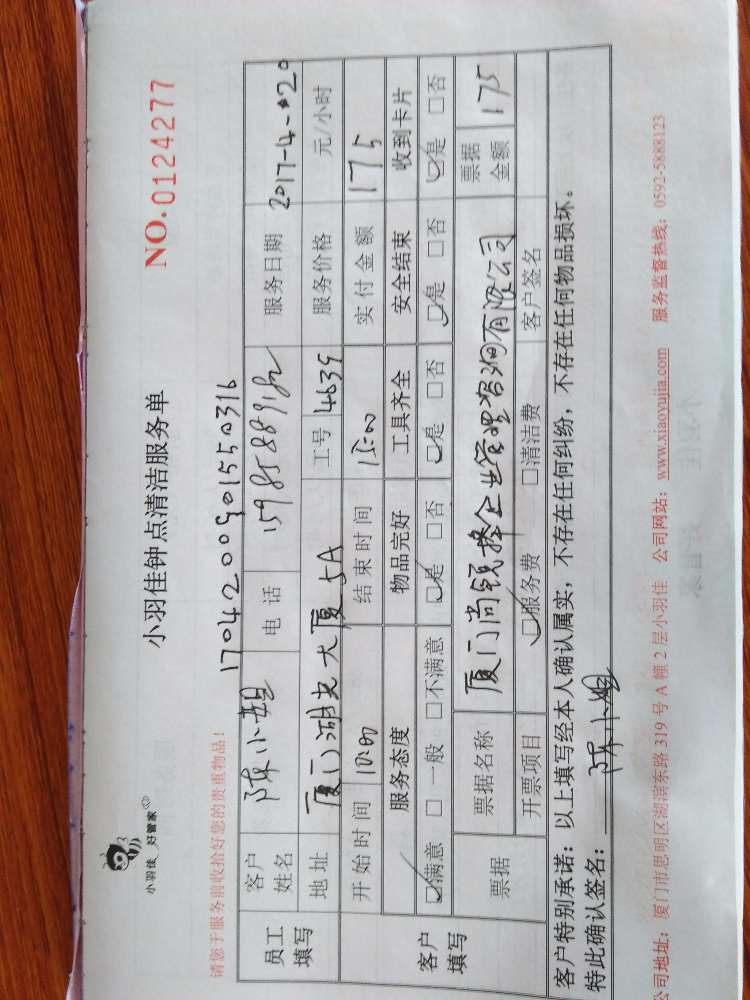 小羽佳 好管家
小羽佳钟点清洁服务单
NO.0124277
请您于服务前收拾好您的贵重物品!
1704200901550316
员工填写
客户姓名 陈小姐 电话 服务日期 2017-4-20
地址 厦门湖光大厦5A 工号 4639 服务价格 元/小时
客户填写
开始时间 10:00 结束时间 15:00 实付金额 175
服务态度 物品完好 工具齐全 安全结束 收到卡片
☑满意 □一般 □不满意 ☑是 □否 ☑是 □否 ☑是 □否 ☑是 □否
票据 票据名称 厦门尚锐择企业管理咨询有限公司 票据金额 175
开票项目 ☑服务费 □清洁费 客户签名
客户特别承诺:以上填写经本人确认属实,不存在任何纠纷,不存在任何物品损坏。
特此确认签名: 陈小姐
公司地址:厦门市思明区湖滨东路 319 号 A 幢 2 层小羽佳 公司网站:www.xiaoyujia.com 服务监督热线:0592-5888123